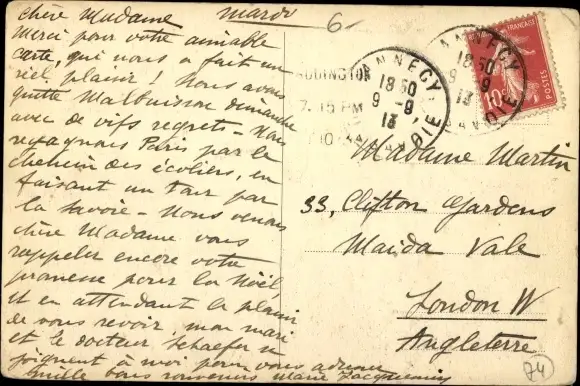 Chère Madame mardi
Merci pour votre aimable
carte, qui nous a fait un
réel plaisir ! Nous avons
quitté Malbuisson dimanche
avec de vifs regrets - Nous
regagnons Paris par le
chemin des écoliers, en
faisant un tour par
la Savoie - Nous venons
chère Madame vous
rappeler encore votre
promesse pour la Noël,
et en attendant le plaisir
de vous revoir, mon mari
et le docteur Schaefer se
joignent à moi pour vous adresser
mille bons souvenirs Marie Jacquemin
6-
PADDINGTON
7.15 PM
ANNECY
18 50
9 - 9
13
SAVOIE
ANNECY
18 50
9 - 9
13
SAVOIE
FRANÇAISE
POSTES
10c
Madame Martin
33, Clifton Gardens
Maida Vale
London W
Angleterre
74